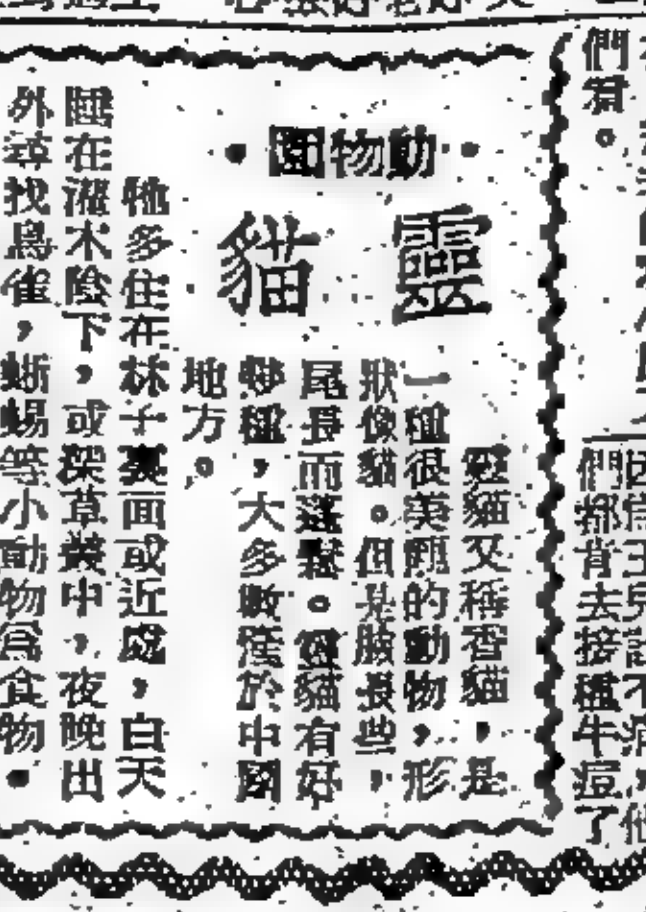 動物園
靈貓
靈貓又稱香貓,是
一種很美麗的動物,形
狀像貓。但是臉長些,
尾長而蓬鬆。靈貓有好
幾種,大多數產於中國
地方。
牠多住在林子裏面或近處,白天
在灌木陰下,或深草叢中,夜晚出
外尋找鳥雀,蜥蜴等小動物為食物。
們看。
們都肯去接種牛痘了